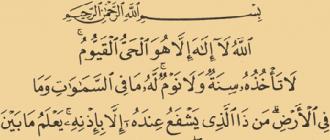 بِسْمِ اللَّهِ الرَّحْمَٰنِ الرَّحِيمِ
اللَّهُ لَا إِلَٰهَ إِلَّا هُوَ الْحَيُّ الْقَيُّومُ ۚ
لَا تَأْخُذُهُ سِنَةٌ وَلَا نَوْمٌ ۚ لَهُ مَا فِي السَّمَاوَاتِ وَمَا
فِي الْأَرْضِ ۗ مَنْ ذَا الَّذِي يَشْفَعُ عِنْدَهُ إِلَّا بِإِذْنِهِ ۚ يَعْلَمُ مَا بَيْنَ